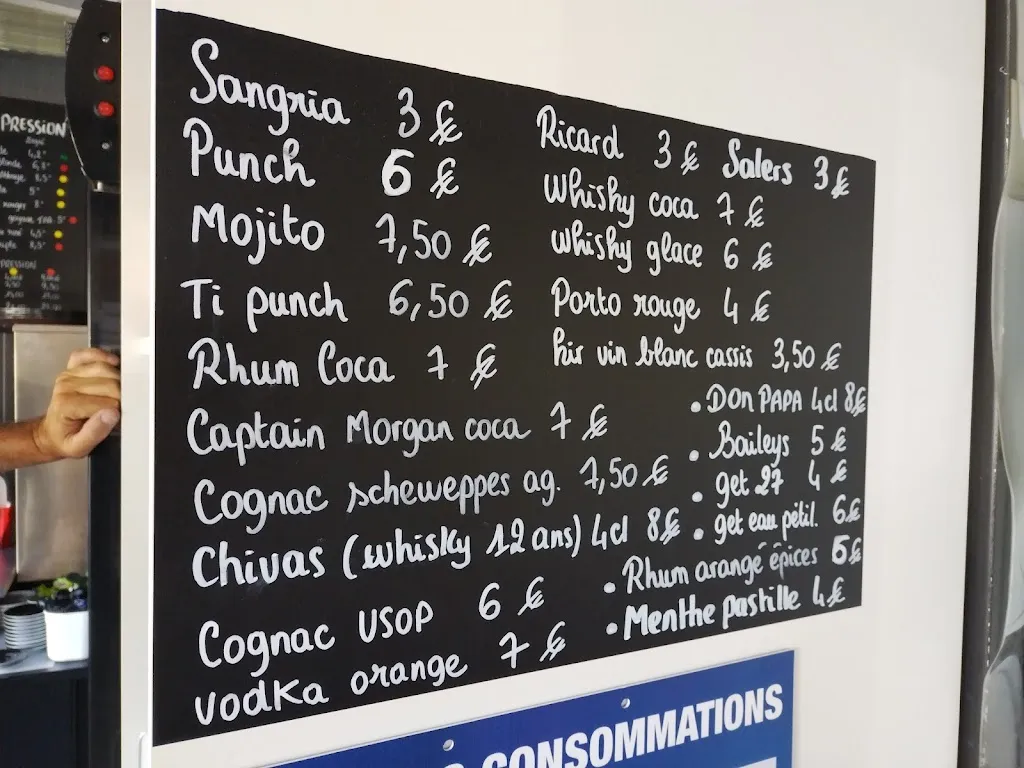 Sangria 3 €
Punch 6 €
Mojito 7,50 €
Ti punch 6,50 €
Rhum Coca 7 €
Captain Morgan coca 7 €
Cognac scheweppes ag. 7,50 €
Chivas (whisky 12 ans) 4cl 8€
Cognac USOP 6 €
vodka orange 7 €
Ricard 3 € Salers 3 €
Whisky coca 7 €
whisky glace 6 €
Porto rouge 4 €
kir vin blanc cassis 3,50 €
• DON PAPA 4cl 8€
• Baileys 5 €
• get 27 4 €
• get eau pétil. 6€
• Rhum arangé épices 6€
• Menthe pastille 4€
CONSOMMATIONS
PRESSION
PRESSION